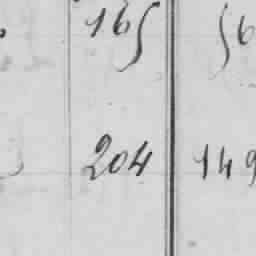 165 56
204 149